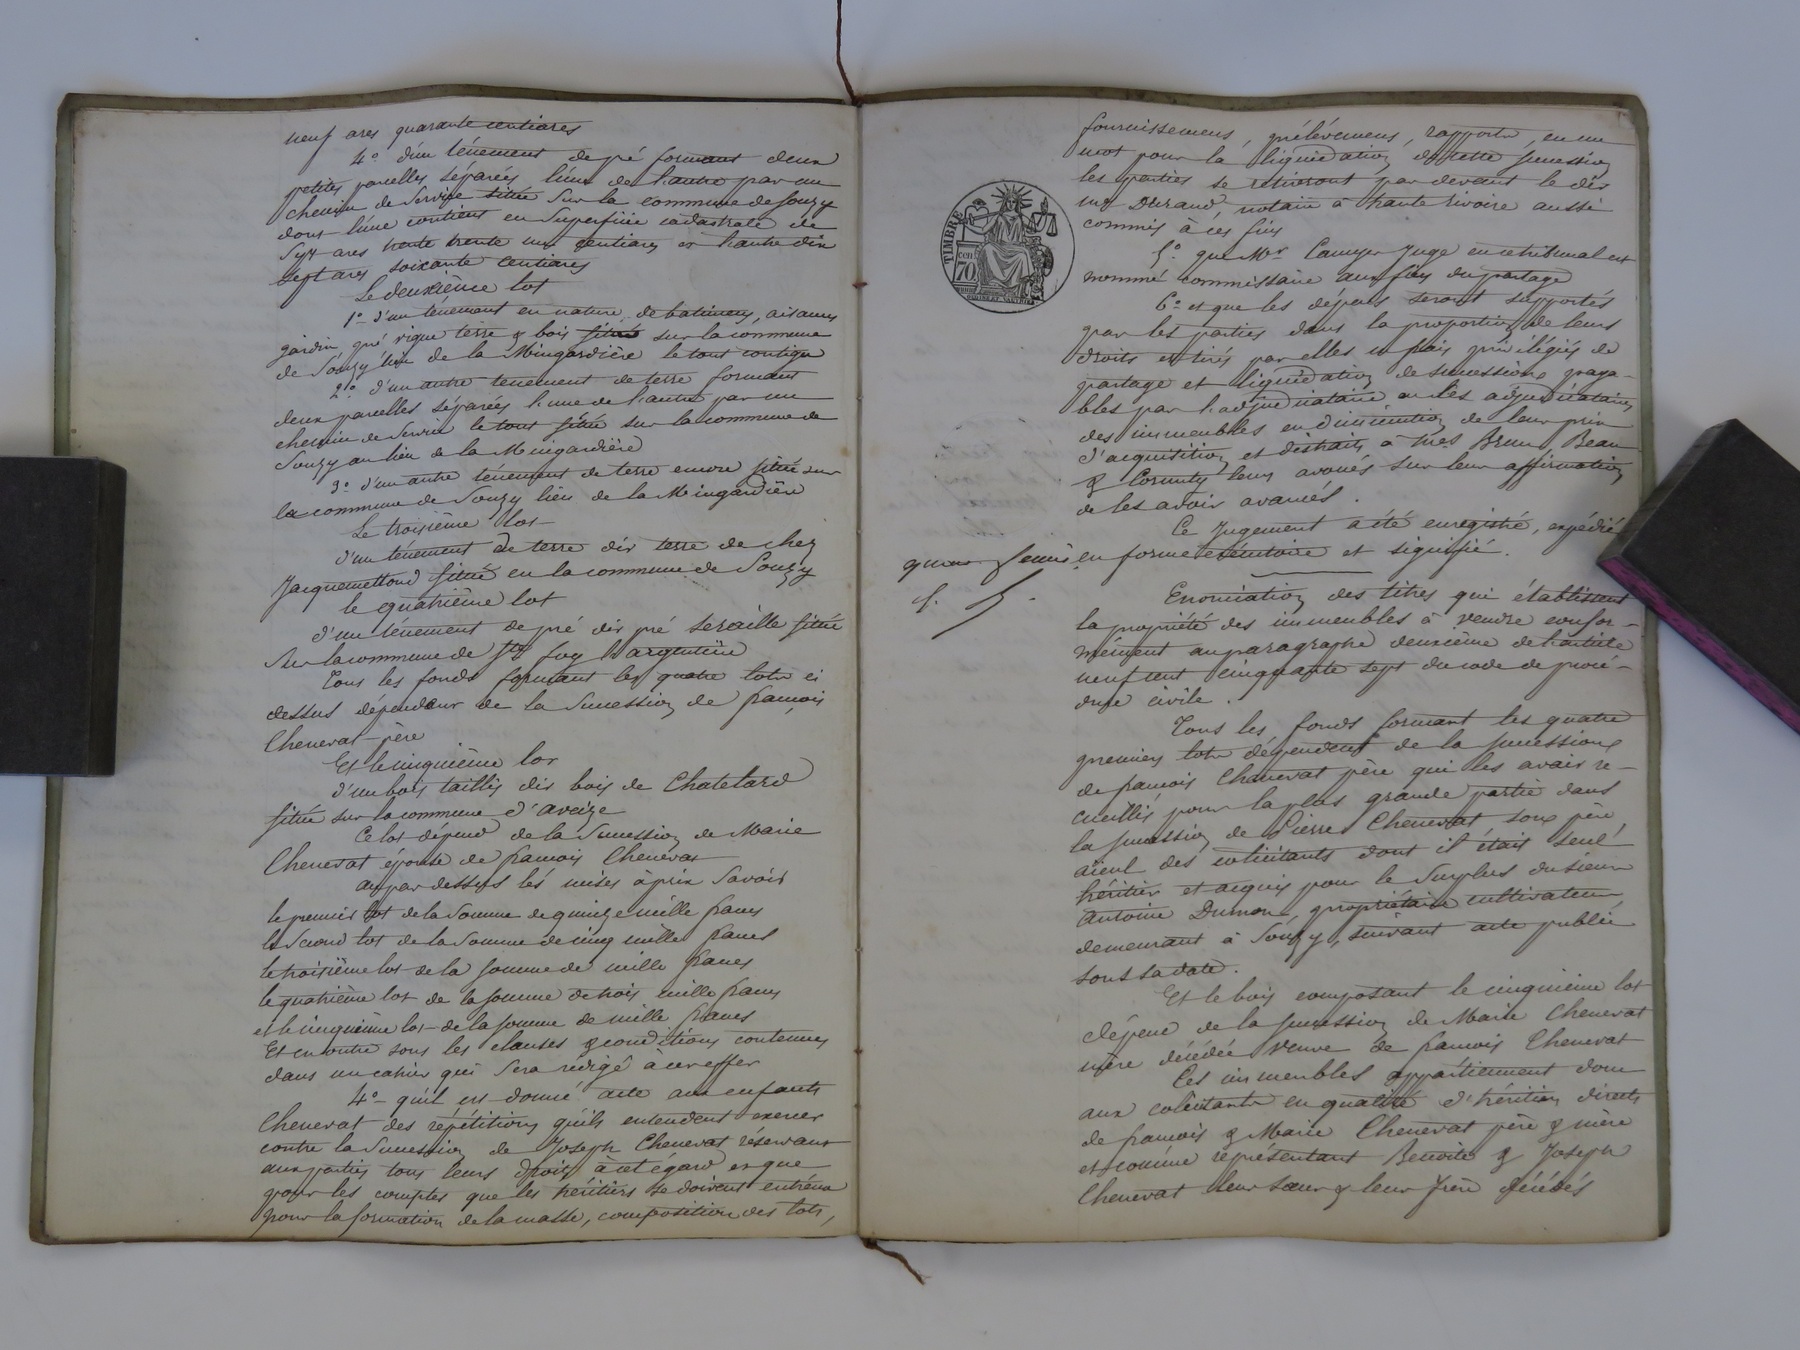 neuf ares quarante centiares
4° d'un ténement de pré formant deux
petites parcelles séparées l'une de l'autre par un
chemin de service située sur la commune de Souzy
dont l'une contient en superficie cadastrale de
sept ares trente un centiares et l'autre dix
sept ares soixante centiares
Le deuxième lot
1° d'un ténement en nature de batimens, aisances
jardin, pré vigne terre & bois situé sur la commune
de Souzy lieu de la Mingardière le tout contigu
2° d'un autre tenement de terre formant
deux parcelles séparées l'une de l'autre par un
chemin de service le tout situé sur la commune de
Souzy au lieu de la Mingardière
3° d'un autre ténement de terre encore situé sur
la commune de Souzy lieu de la Mingardière
Le troisième lot
d'un ténement de terre dit terre de chez
Jacquemettond située en la commune de Souzy
le quatrième lot
d'un ténement de pré dit pré Seraille située
sur la commune de Ste foy l'argentière
Tous les fonds formant les quatre lots ci
dessus dépendent de la Succession de francois
Chenevat père
Et le cinquième lot
d'un bois taillis dit bois de Chatelard
située sur la commune d'aveize
Ce lot dépend de la Succession de Marie
Chenevat épouse de francois Chenevat
au par dessus les mises à prix Savoir
le premier lot de la Somme de quinze mille francs
le Second lot de la Somme de cinq mille francs
le troisième lot de la somme de mille francs
le quatrième lot de la somme de trois mille francs
et le cinquième lot de la somme de mille francs
Et en outre sous les clauses & conditions contenues
dans un cahier qui sera rédigé à cet effet
4° qu'il est donné acte aux enfants
Chenevat des répétitions qu'ils entendent exercer
contre la Succession de Joseph Chenevat réservant
aux parties tous leurs droits à cet égard et que
pour les comptes que les héritiers se doivent entr'eux
pour la formation de la masse, composition des lots,
TIMBRE
70
fournissemens, prélèvemens, rapports, en un
mot pour la liquidation de cette succession
les parties se retireront par devant le dit
me Durand, notaire à haute rivoire aussi
commis à ces fins
5° que Mr Camyer Juge en ce tribunal est
nommé commissaire aux fins du partage
6° et que les dépens seront supportés
par les parties dans la proportion de leurs
droits et tirés par elles en frais privilégiés de
partage et liquidation de succession paya-
bles par l'adjudicataire ou les adjudicataires
des immeubles en diminution de leur prix
d'acquisition et distraits à mes Brun, Beau
& Cormuty leurs avoués sur leur affirmation
de les avoir avancés.
Ce Jugement a été enregistré, expédié
en forme exécutoire et signifié.
Enonciation des titres qui établissent
la propriété des immeubles à vendre confor-
mément au paragraphe deuxième de l'article
neuf cent cinquante sept du code de procé-
dure civile.
Tous les fonds formant les quatre
premiers lots dépendent de la succession
de francois Chenevat père qui les avait re-
cueillis pour la plus grande partie dans
la succession de Pierre Chenevat son père,
aieul des colicitants dont il était seul
héritier et acquis pour le surplus du sieur
Antoine Dumon, propriétaire cultivateur,
demeurant à Souzy, suivant acte public
sous sa date.
Et le bois composant le cinquième lot
dépend de la succession de Marie Chenevat
mère décédée veuve de francois Chenevat
Ces immeubles appartiennent donc
aux colicitants en qualité d'héritiers directs
de francois & Marie Chenevat père & mère
et comme représentant Benoite & Joseph
Chenevat leur sœur & leur frère décédés